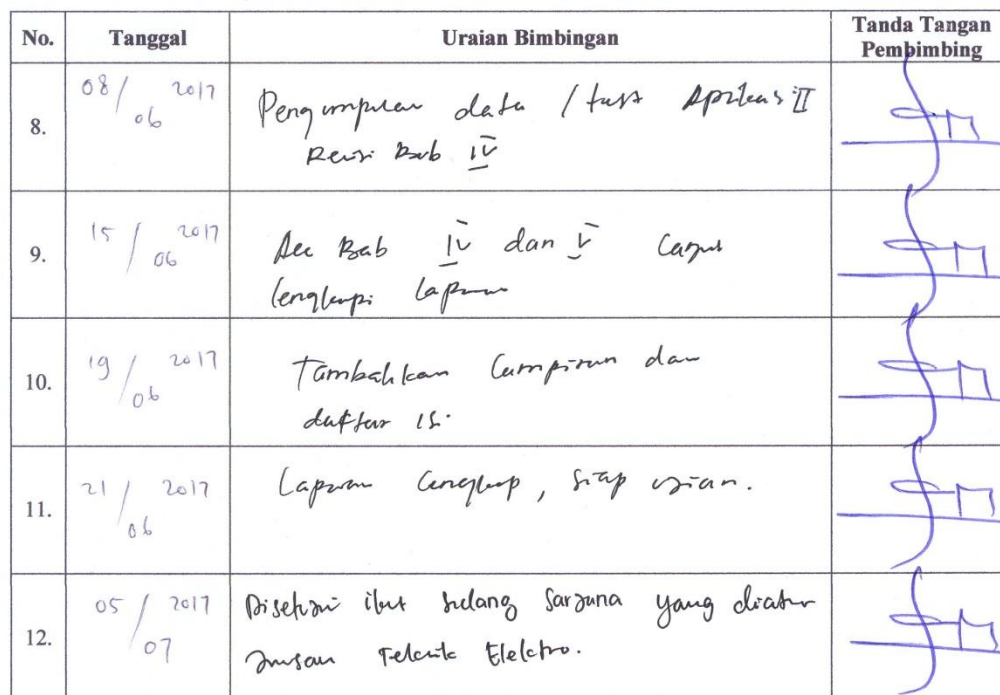 No. Tanggal Uraian Bimbingan Tanda Tangan Pembimbing
8. 08/06 2017 Pengumpulan data / test Aplikasi II
Revisi Bab IV
9. 15/06 2017 Acc Bab IV dan V Lanjut
lengkapi Laporan
10. 19/06 2017 Tambahkan Lampiran dan
daftar isi.
11. 21/06 2017 Laporan Lengkap, siap ujian.
12. 05/07 2017 Disetujui ikut sidang Sarjana yang diatur
Jurusan Teknik Elektro.